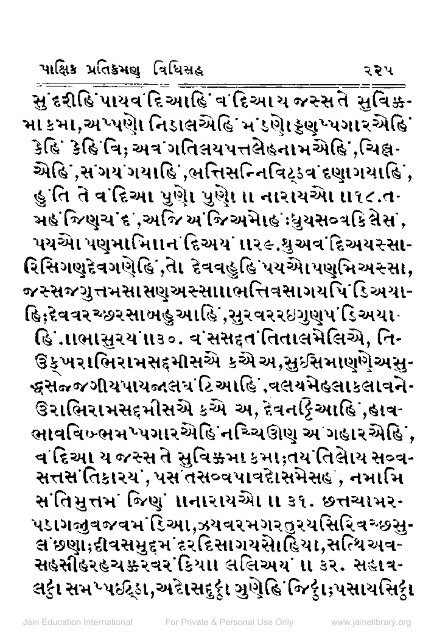 પાક્ષિક પ્રતિક્રમણ વિધિસહ ૨૨૫
સું દરીહિં પાયવં દિઆહિં વં દિઆ ય જસ્સ તે સુવિક્ક-
મા કમા, અપ્પણો નિડાલએહિં મં ડણોડ્ડણપ્પગારએહિં
કેહિં કેહિં વિ; અવંગતિલયપત્તલેહનામએહિં, ચિલ્લ-
એહિં, સંગયંગયાહિં, ભત્તિસન્નિવિટ્ઠવંદણાગયાહિં,
હું તિ તે વંદિઆ પુણો પુણો ॥ નારાયઓ ॥૨૮. ત-
મહં જિણચંદં, અજિઅં જિઅમોહં; ધુયસવ્વકિલેસં,
પયઓ પણમામિ॥નંદિઅયં ॥૨૯. થુઅવંદિઅયસ્સા-
રિસિગણદેવગણેહિં, તો દેવવહુહિં પયઓપણમિઅસ્સા,
જસ્સજગુત્તમસાસણઅસ્સા॥ભત્તિવસાગયપિંડિઅયા-
હિં; દેવવરચ્છરસાબહુઆહિં, સુરવરરઇગુણપંડિઅયા
હિં.॥ભાસુરયં॥૩૦. વંસસદ્દતંતિતાલમેલિએ, તિ-
ઉક્ખરાભિરામસદ્દમીસએ કએ અ, સુઈસમાણણેઅસુ-
દ્ધસજ્જગીયપાયજાલઘંટિઆહિં, વલયમેહલાકલાવને-
ઉરાભિરામસદ્દમીસએ કએ અ, દેવનટ્ટિઆહિં, હાવ-
ભાવવિબ્ભમપ્પગારએહિંનચ્ચિઊણ અંગહારએહિં,
વંદિઆ ય જસ્સ તે સુવિક્કમા કમા; તયં તિલોય સવ્વ-
સત્તસંતિકારયં, પસંતસવ્વપાવદોસમેસહં, નમામિ
સંતિમુત્તમં જિણં ॥નારાયઓ ॥ ૩૧. છત્તચામર-
પડાગજૂવજવમંડિઆ, ઝયવરમગરતુરયસિરિવચ્છસુ-
લંછણા; દીવસમુદ્દમંદરદિસાગયસોહિયા, સત્થિઅવ-
સહસીહરહચક્કવરંકિયા॥ લલિઅયં ॥ ૩૨. સહાવ-
લટ્ઠા સમપ્પઇટ્ઠા, અદોસદુટ્ઠા ગુણેહિં જિટ્ઠા; પસાયસિટ્ઠા
Jain Education International For Private & Personal Use Only www.jainelibrary.org